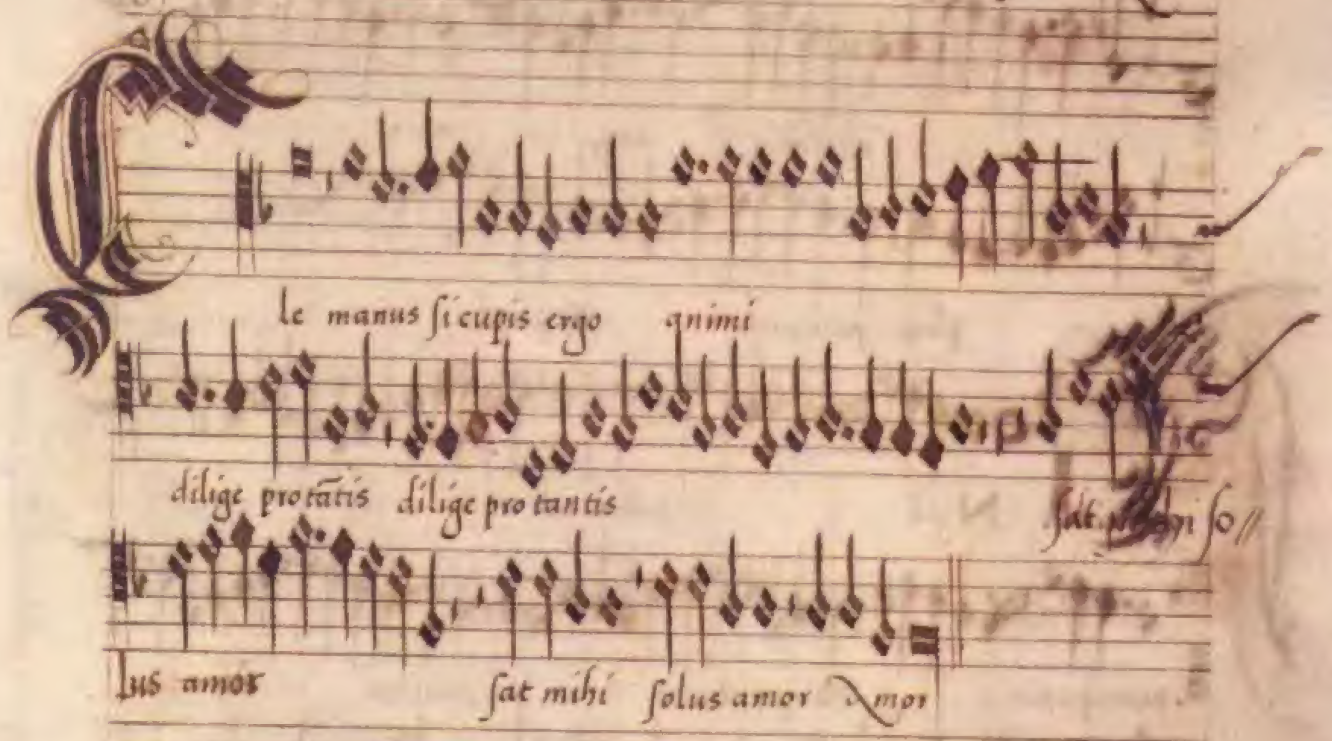 le manus si cupis ergo animi
dilige protãtis dilige pro tantis sat mihi so//
lus amor sat mihi solus amor Amor